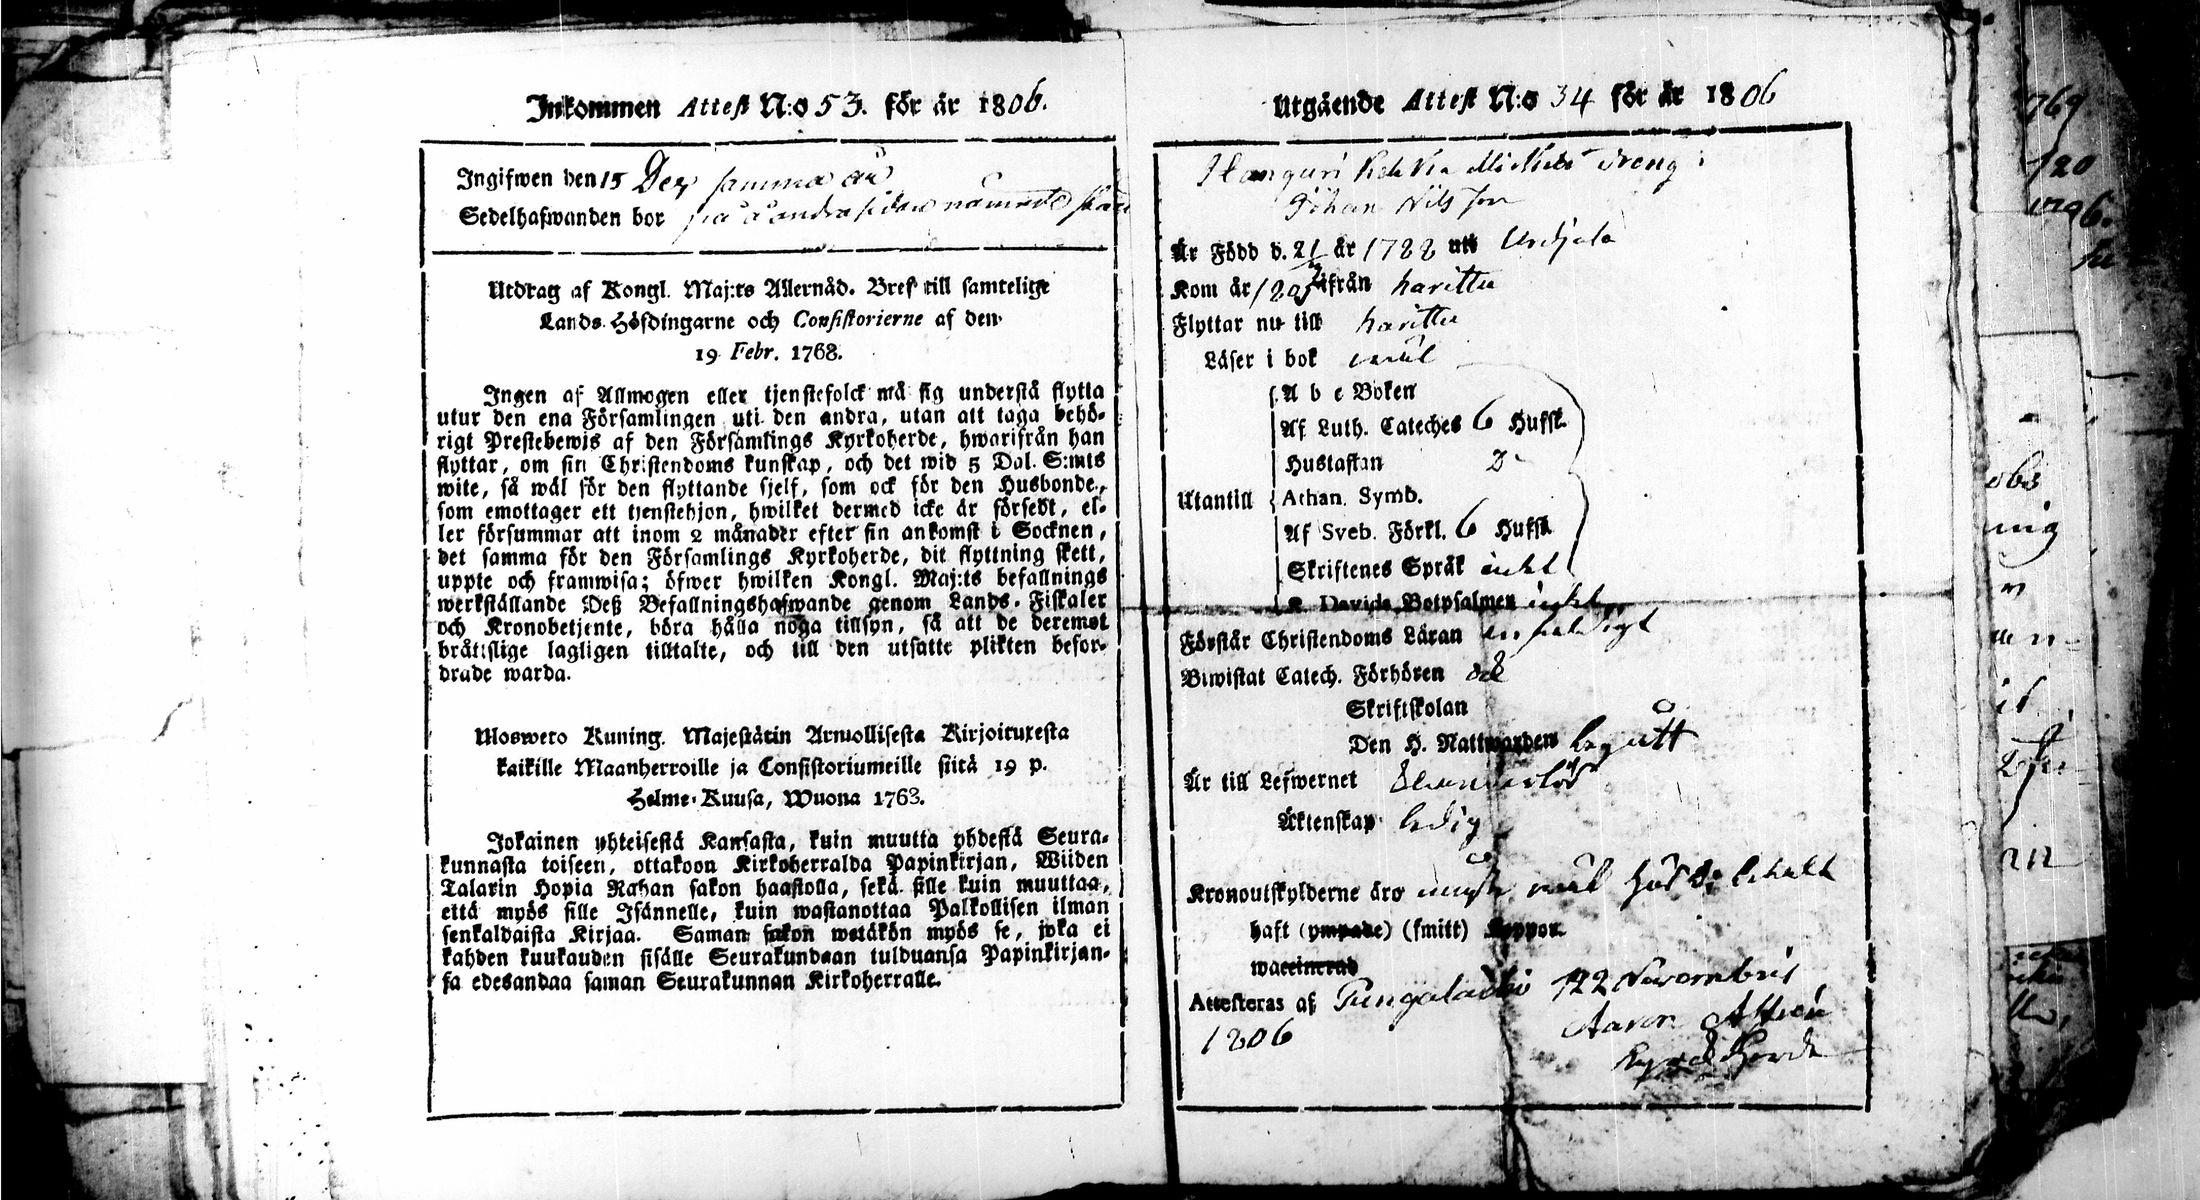 Inkommen Attest N:o 53. för år 1806.
Ingifwen den 15 Dec samma år
Sedelhafwanden bor på å andra sidan nämnde
Utdrag af Kongl. Maj:ts Allernåd. Bref till samtelige
Lands-Höfdingarne och Consistorierne af den
19 Febr. 1768.
Ingen af Allmogen eller tjenstefolck må sig understå flytta
utur den ena Församlingen uti den andra, utan att taga behö-
rigt Prestebewis af den Församlings Kyrkoherde, hwarifrån han
flyttar, om sin Christendoms kunskap, och det wid 5 Dal. S:mts
wite, så wäl för den flyttande sjelf, som ock för den Husbonde,
som emottager ett tjenstehjon, hwilket dermed icke är försedt, el-
ler försummar att inom 2 månader efter sin ankomst i Socknen,
det samma för den Församlings Kyrkoherde, dit flyttning skett,
uppte och framwisa; öfwer hwilken Kongl. Maj:ts befallnings
werkställande Deß Befallningshafwande genom Lands-Fiskaler
och Kronobetjente, böra hålla noga tillsyn, så att de deremot
bråtislige lagligen tilltalte, och till den utsatte plikten befor-
drade warda.
Uloswero Kuning. Majestätin Armollisesta Kirjoituxesta
kaikille Maanherroille ja Consistoriumeille siitä 19 p.
Helme-Kuusa, Wuona 1763.
Jokainen yhteisestä Kansasta, kuin muutta yhdestä Seura-
kunnasta toiseen, ottakoon Kirkoherralda Papinkirjan, Wiiden
Talarin Hopia Rahan sakon haastolla, sekä sille kuin muuttaa,
että myös sille Isännelle, kuin wastanottaa Palkollisen ilman
senkaldaista Kirjaa. Saman sakon wetäkön myös se, joka ei
kahden kuukauden sisälle Seurakundaan tulduansa Papinkirjan-
sa edesandaa saman Seurakunnan Kirkoherralle.
Utgående Attest N:o 34 för år 1806
Michels dreng
Johan Nilsson
Är Född d. 21 år 1788 uti Urdjala
Kom år 1805 ifrån harittu
Flyttar nu till harittu
Läser i bok wäl
A b c Boken
Af Luth. Cateches 6 Hufst.
Hustaflan
Utantill Athan. Symb.
Af Sveb. Förkl. 6 Hufst.
Skriftenes Språk intet
K. Davids Botpsalmer intet
Förstår Christendoms Läran enfaldigt
Biwistat Catech. Förhören och
Skriftskolan
Den H. Nattwarden begått
Är till Lefwernet
Äktenskap ledig
Kronoutskylderne äro
haft (ympade) (smitt) Koppor.
waccinerad
Attesteras af Pungalaitio 22 Novembris
1806
Aaron